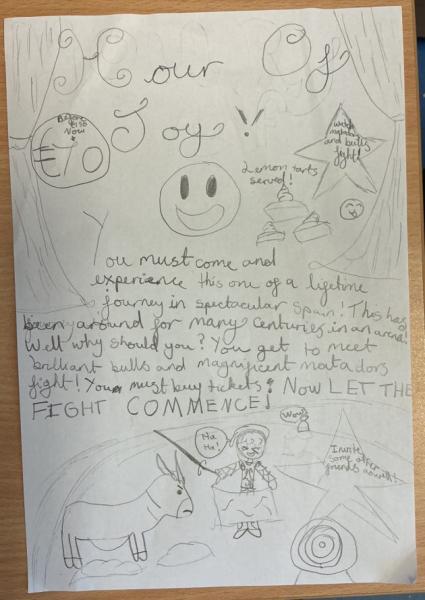 Hour Of
Joy!
Before
€150
Now
€70
watch
matadors
and bulls
fight!
Lemon tarts
served!
You must come and
experience this one of a lifetime
journey in spectacular Spain! This has
been around for many centuries in an arena!
Well why should you? You get to meet
brilliant bulls and magnificent matadors
fight! You must buy tickets! NOW LET THE
FIGHT COMMENCE!
Ha
Ha!
Wow
Invite
some other
friends as well!